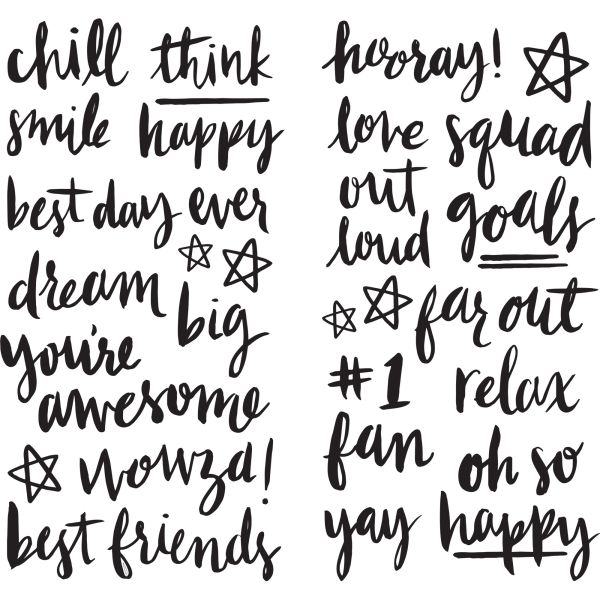 chill think
smile happy
best day ever
dream
big
you're
awesome
wowza!
best friends
hooray!
love out loud
squad goals
far out
#1 fan
relax
yay
oh so happy